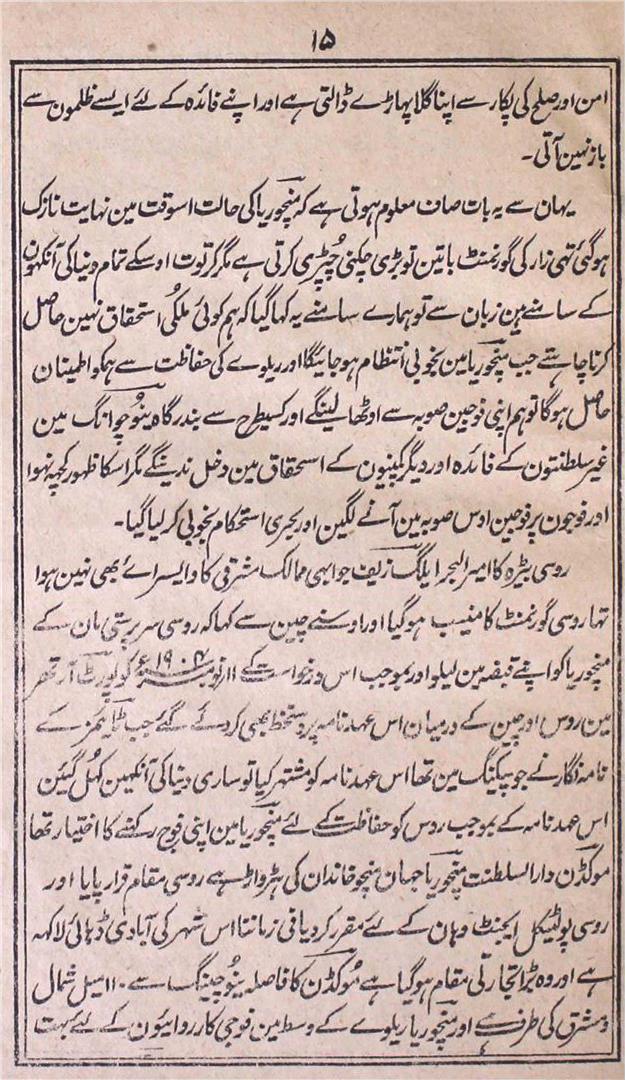 ۱۵
امن اور صلح کی پکار سے اپنا گلا پھاڑے ڈالتی ہے اور اپنے فائدہ کے لئے ایسے ظلمون سے
باز نہین آتی۔
یہان سے یہ بات صاف معلوم ہوتی ہے کہ منچوریا کی حالت اسوقت مین نہایت نازک
ہوگئی تہی زار کی گورنمنٹ باتین تو بڑی چکنی چُپڑی کرتی ہے مگر کرتوت اوسکے تمام دنیا کی آنکھون
کے سامنے ہین زبان سے تو ہمارے سامنے یہ کہا گیا کہ ہم کوئی ملکی استحقاق نہین حاصل
کرنا چاہتے جب منچوریا مین بخوبی انتظام ہو جائیگا اور ریلوے کی حفاظت سے ہمکو اطمینان
حاصل ہوگا تو ہم اپنی فوجین صوبہ سے اوٹھا لینگے اور کسیطرح سے بندرگاہ ینوچوانگ مین
غیر سلطنتون کے فائدہ اور دیگر کمپنیون کے استحقاق مین دخل ندینگے مگر اسکا ظہور کچہہ نہوا
اور فوجون پر فوجین اوس صوبہ مین آنے لگین اور بحری استحکام بخوبی کر لیا گیا۔
روسی بیڑہ کا امیر البحر ایلگ زیف جو ابہی ممالک مشرقی کا وایسراے بھی نہین ہوا
تہا روسی گورنمنٹ کا منیب ہوگیا اور اوسنے چین سے کہا کہ روسی سرپرستی مان کے
منچوریا کو اپنے قبضہ مین لیلو اور بموجب اس درخواست کے ۱۱ نومبر کو پورٹ آرتھر
مین روس اور چین کے درمیان اس عہد نامہ پر دستخط بھی کر دئے گئے جب ٹایمز کے
نامہ نگار نے جو پیکنگ مین تھا اس عہد نامہ کو مشتہر کیا تو ساری دنیا کی آنکھین کھل گئین
اس عہد نامہ کے بموجب روس کو حفاظت کے لئے منچوریا مین اپنی فوج رکھنے کا اختیار تھا
موکڈن دارالسلطنت منچوریا جہان منچو خاندان کی ہڑواڑ ہے روسی مقام قرار پایا اور
روسی پولٹیکل ایجنٹ وہان کے لئے مقرر کر دیا فی زماننا اس شہر کی آبادی ڈہائی لاکہہ
ہے اور وہ بڑا تجارتی مقام ہوگیا ہے موکڈن کا فاصلہ ینوچینگ سے ۱۱۰ میل شمال
و مشرق کی طرف ہے اور منچوریا ریلوے کے وسط مین فوجی کارروائیون کے لئے بہت